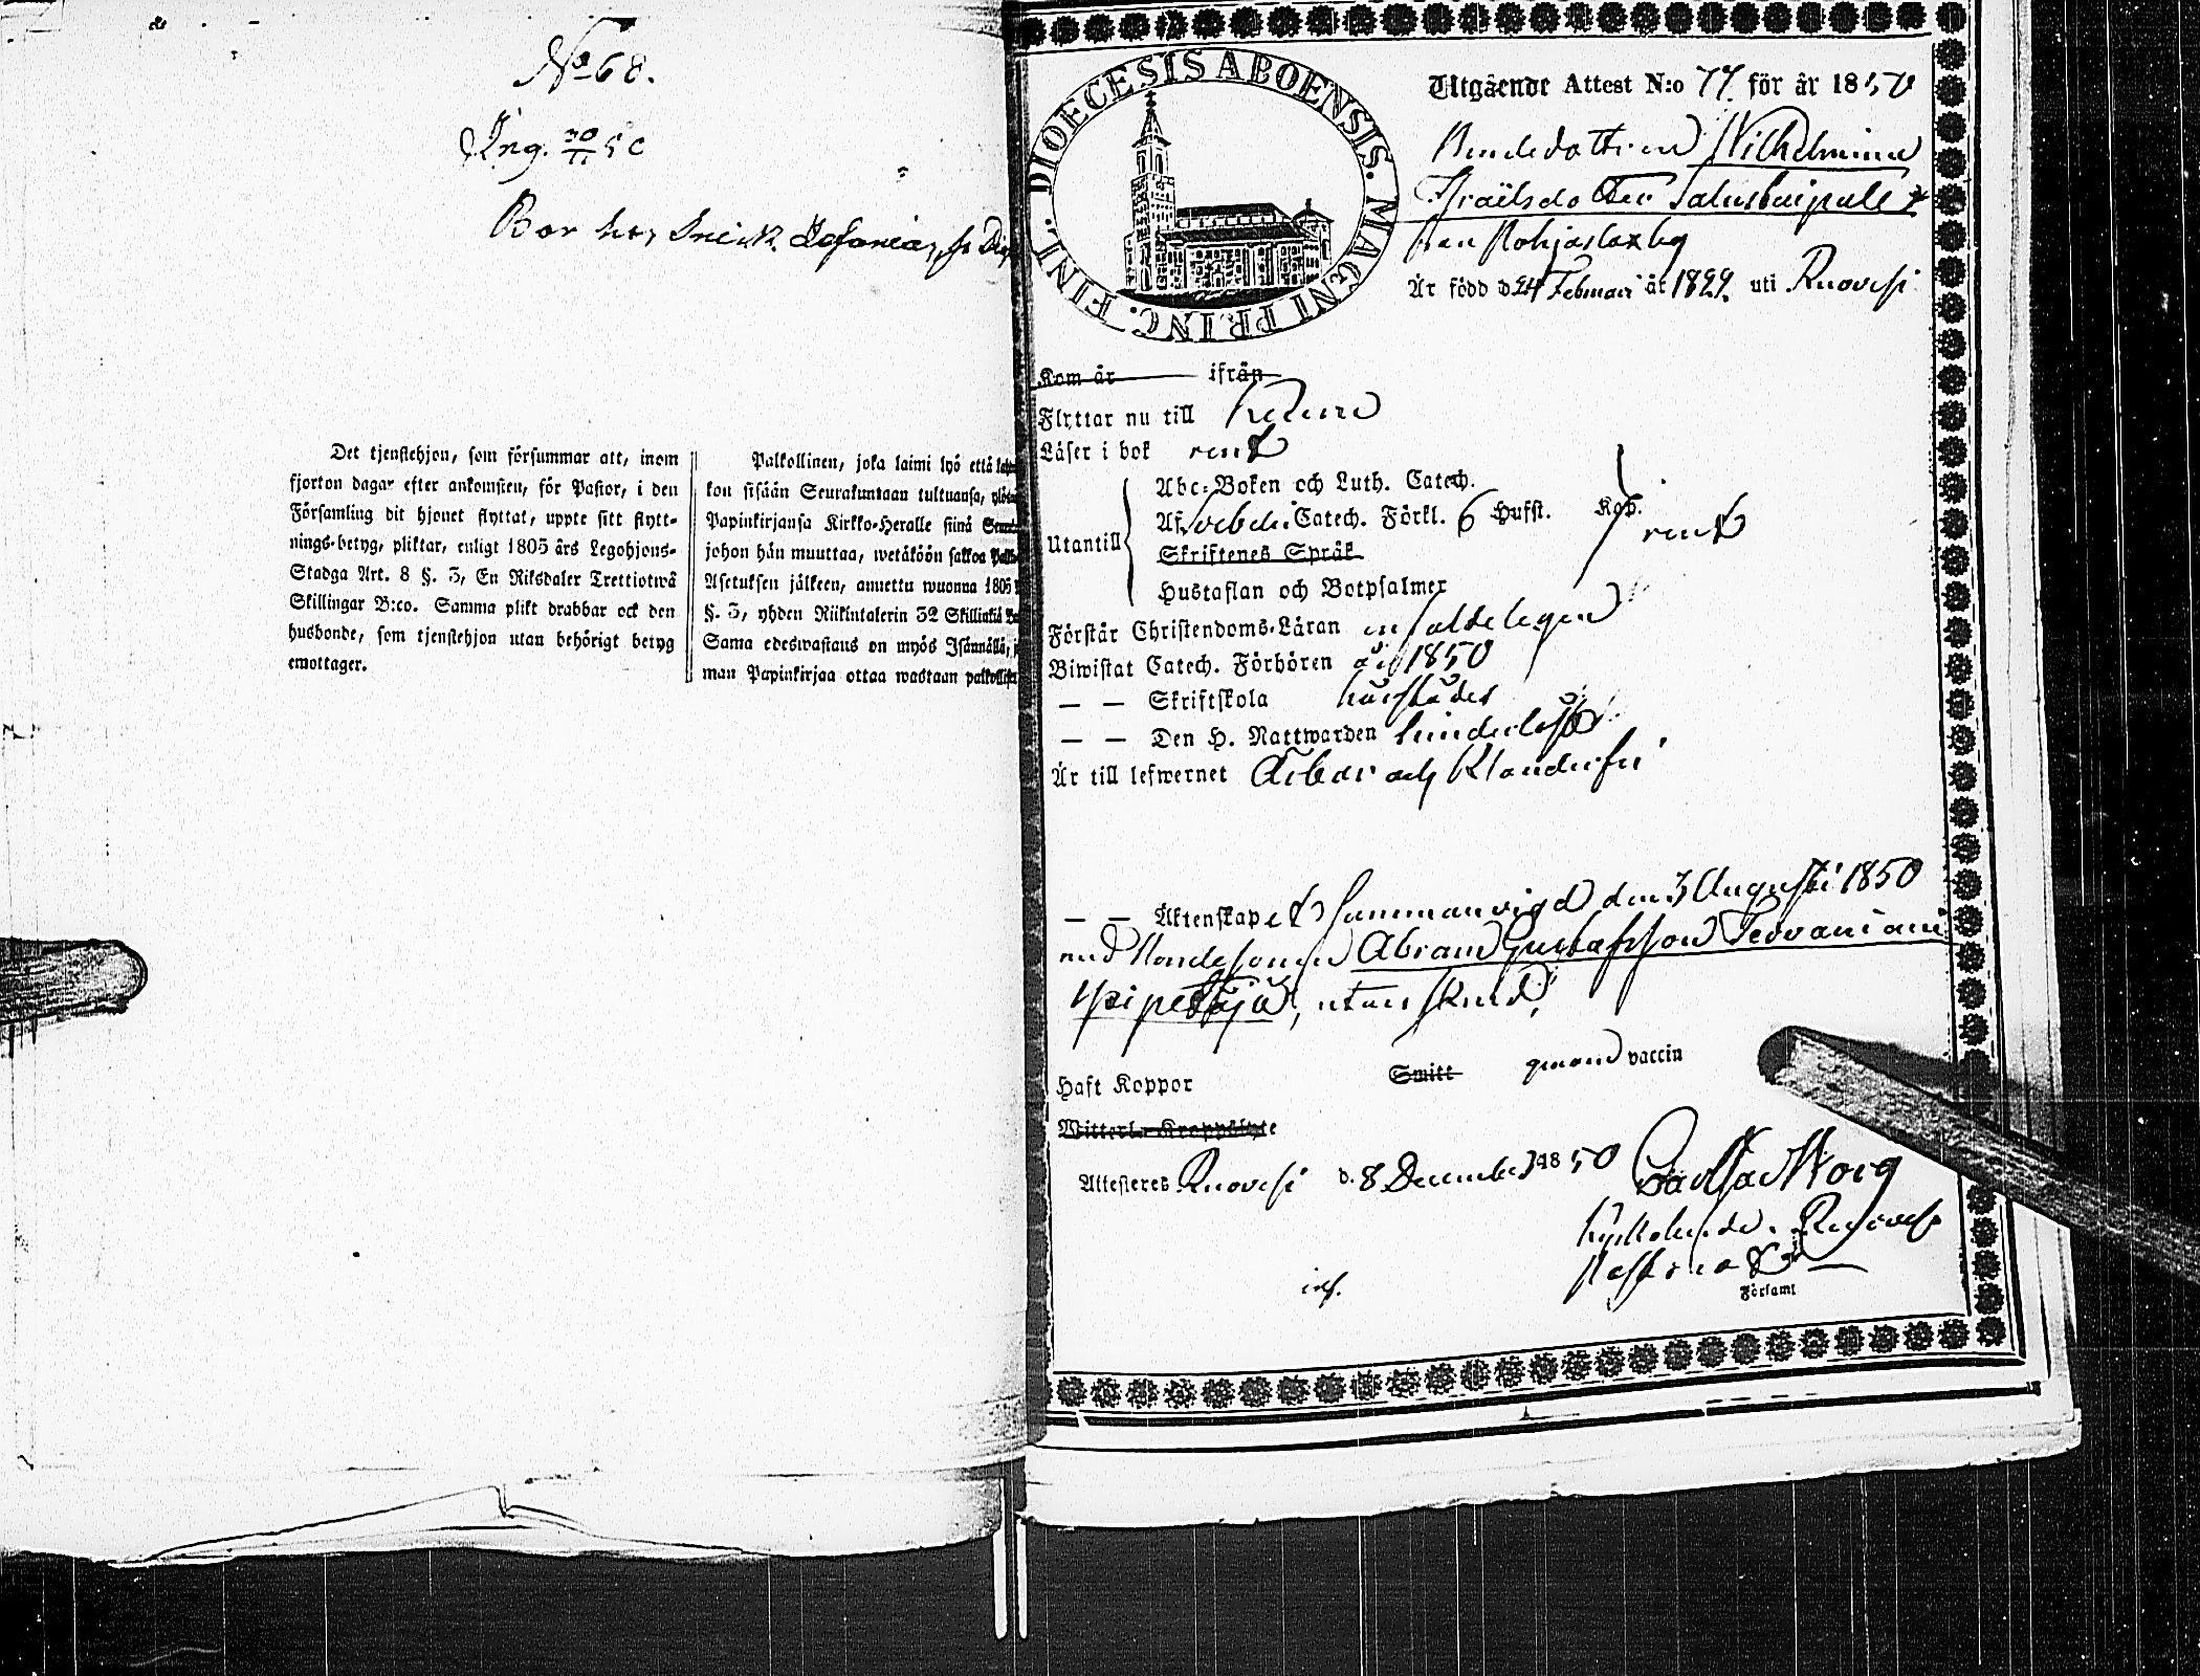 No 68.
Ing. 30/11 50
Bor hos Snick.
Det tjenstehjon, som försummar att, inom
fjorton dagar efter ankomsten, för Pastor, i den
Församling dit hjonet flyttat, uppte sitt flytt-
nings-betyg, pliktar, enligt 1805 års Legohjons-
Stadga Art. 8 §. 3, En Riksdaler Trettiotwå
Skillingar B:co. Samma plikt drabbar ock den
husbonde, som tjenstehjon utan behörigt betyg
emottager.
Palkollinen, joka laimi lyö että
kon sisään Seurakuntaan tultuansa,
Papinkirjansa Kirkko-Heralle siinä
johon hän muuttaa, wetäköön sakkoa
Asetuksen jälkeen, annettu wuonna 1805
§. 3, yhden Riikintalerin 32 Skillinkiä
Sama edeswastaus on myös Isännällä,
man Papinkirjaa ottaa wastaan
DIOECESIS ABOENSIS. MAGNI PRINC. FINL.
Utgående Attest N:o 77. för år 1850
Bondedottren Wilhelmina
Israëlsdotter
från Pohjaslaxby
Är född d. 24 Februari år 1829. uti Ruovesi
Kom år ifrån
Flyttar nu till
Läser i bok rent
Utantill
Abc-Boken och Luth. Catech.
Af Svebelii Catech. Förkl. 6 Hufst. Kap. rent
Skriftenes Språk
Hustaflan och Botpsalmer
Förstår Christendoms-Läran
Biwistat Catech. Förhören år 1850
— — Skriftskola
— — Den H. Nattwarden
Är till lefwernet Ärbar och Klanderfri
— — Äktenskapet Sammanvigd den 3 Augusti 1850
med Bondesonen Abram Gustafsson
Ypipettäjä, utan skuld.
Haft Koppor Smitt genom vaccin
Witterl. Kropplyte
Attesteras Ruovesi d. 8 December 1850
Ruovesi
Förlamt